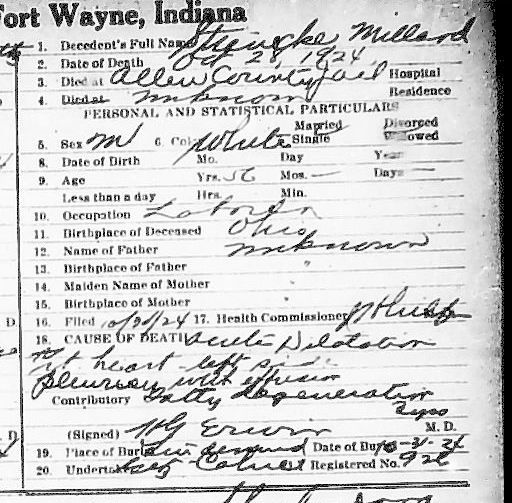 Fort Wayne, Indiana
1. Decedent's Full Name Millard
2. Date of Death Oct 28, 1924
3. Died at Allen County Jail Hospital
4. Died at unknown Residence
PERSONAL AND STATISTICAL PARTICULARS
Married Divorced
5. Sex M 6. Col White Single Widowed
8. Date of Birth Mo. Day Year
9. Age Yrs. 56 Mos. — Days —
Less than a day Hrs. Min.
10. Occupation Laborer
11. Birthplace of Deceased Ohio
12. Name of Father unknown
13. Birthplace of Father "
14. Maiden Name of Mother
15. Birthplace of Mother "
D. 16. Filed 10/30/24 17. Health Commissioner
18. CAUSE OF DEATH Acute Dilatation
heart left side
Pleurisy with effusion
Contributory Fatty Degeneration
D. (Signed) HG Erwin M. D.
19. Place of Burial Date of Bur 10-31-24
20. Undertaker Registered No. 922